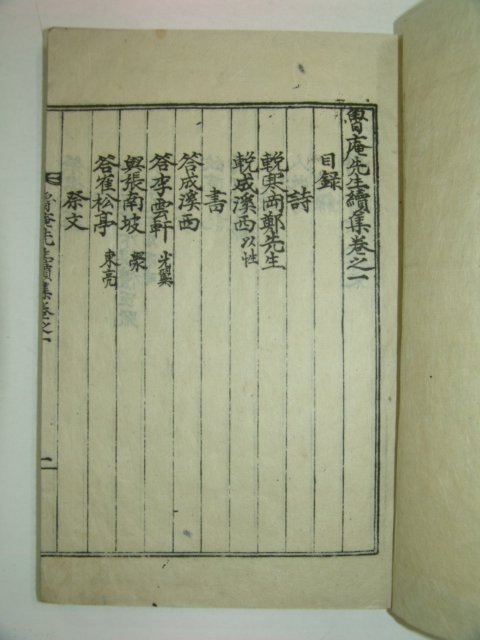 魯庵先生續集卷之一
目録
詩
輓寒岡鄭先生
輓成溪西 以性
書
答成溪西
答李雲軒 光翼
與張南坡
答崔松亭 東亮
祭文
魯庵先生續集卷之一
一